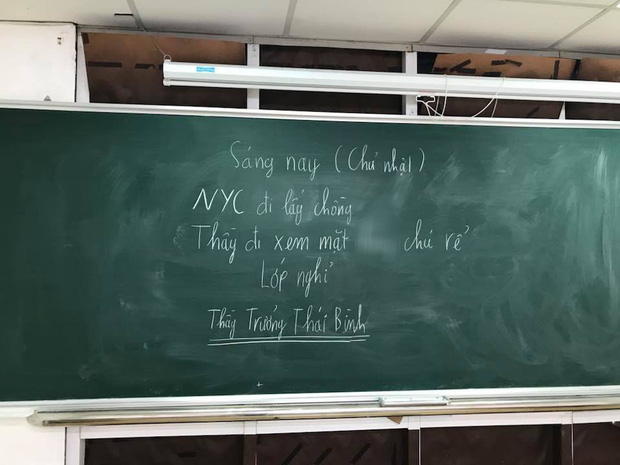 Sáng nay (Chủ nhật)
NYC đi lấy chồng
Thầy đi xem mặt chú rể
Lớp nghỉ
Thầy Trưởng Thái Bình